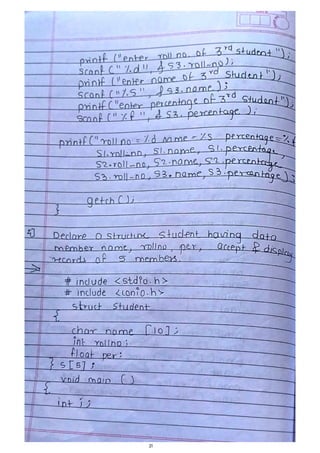 printf ("enter roll no. of 3rd student");
scanf ("%d", &s3.roll-no);
printf ("enter name of 3rd student");
scanf ("%s", &s3.name);
printf ("enter percentage of 3rd student");
scanf ("%f", &s3.percentage);
printf ("roll no = %d name = %s percentage = %
s1.roll-no, s1.name, s1.percentage,
s2.roll-no, s2.name, s2.percentage,
s3.roll-no, s3.name, s3.percentage);
getch ();
}
5] Declare a structure student having data
member name, rollno, per, accept & display
records of 5 members.
# include <stdio.h>
# include <conio.h>
struct student
{
char name [10];
int rollno;
float per;
} s[5];
void main ()
{
int i;
21